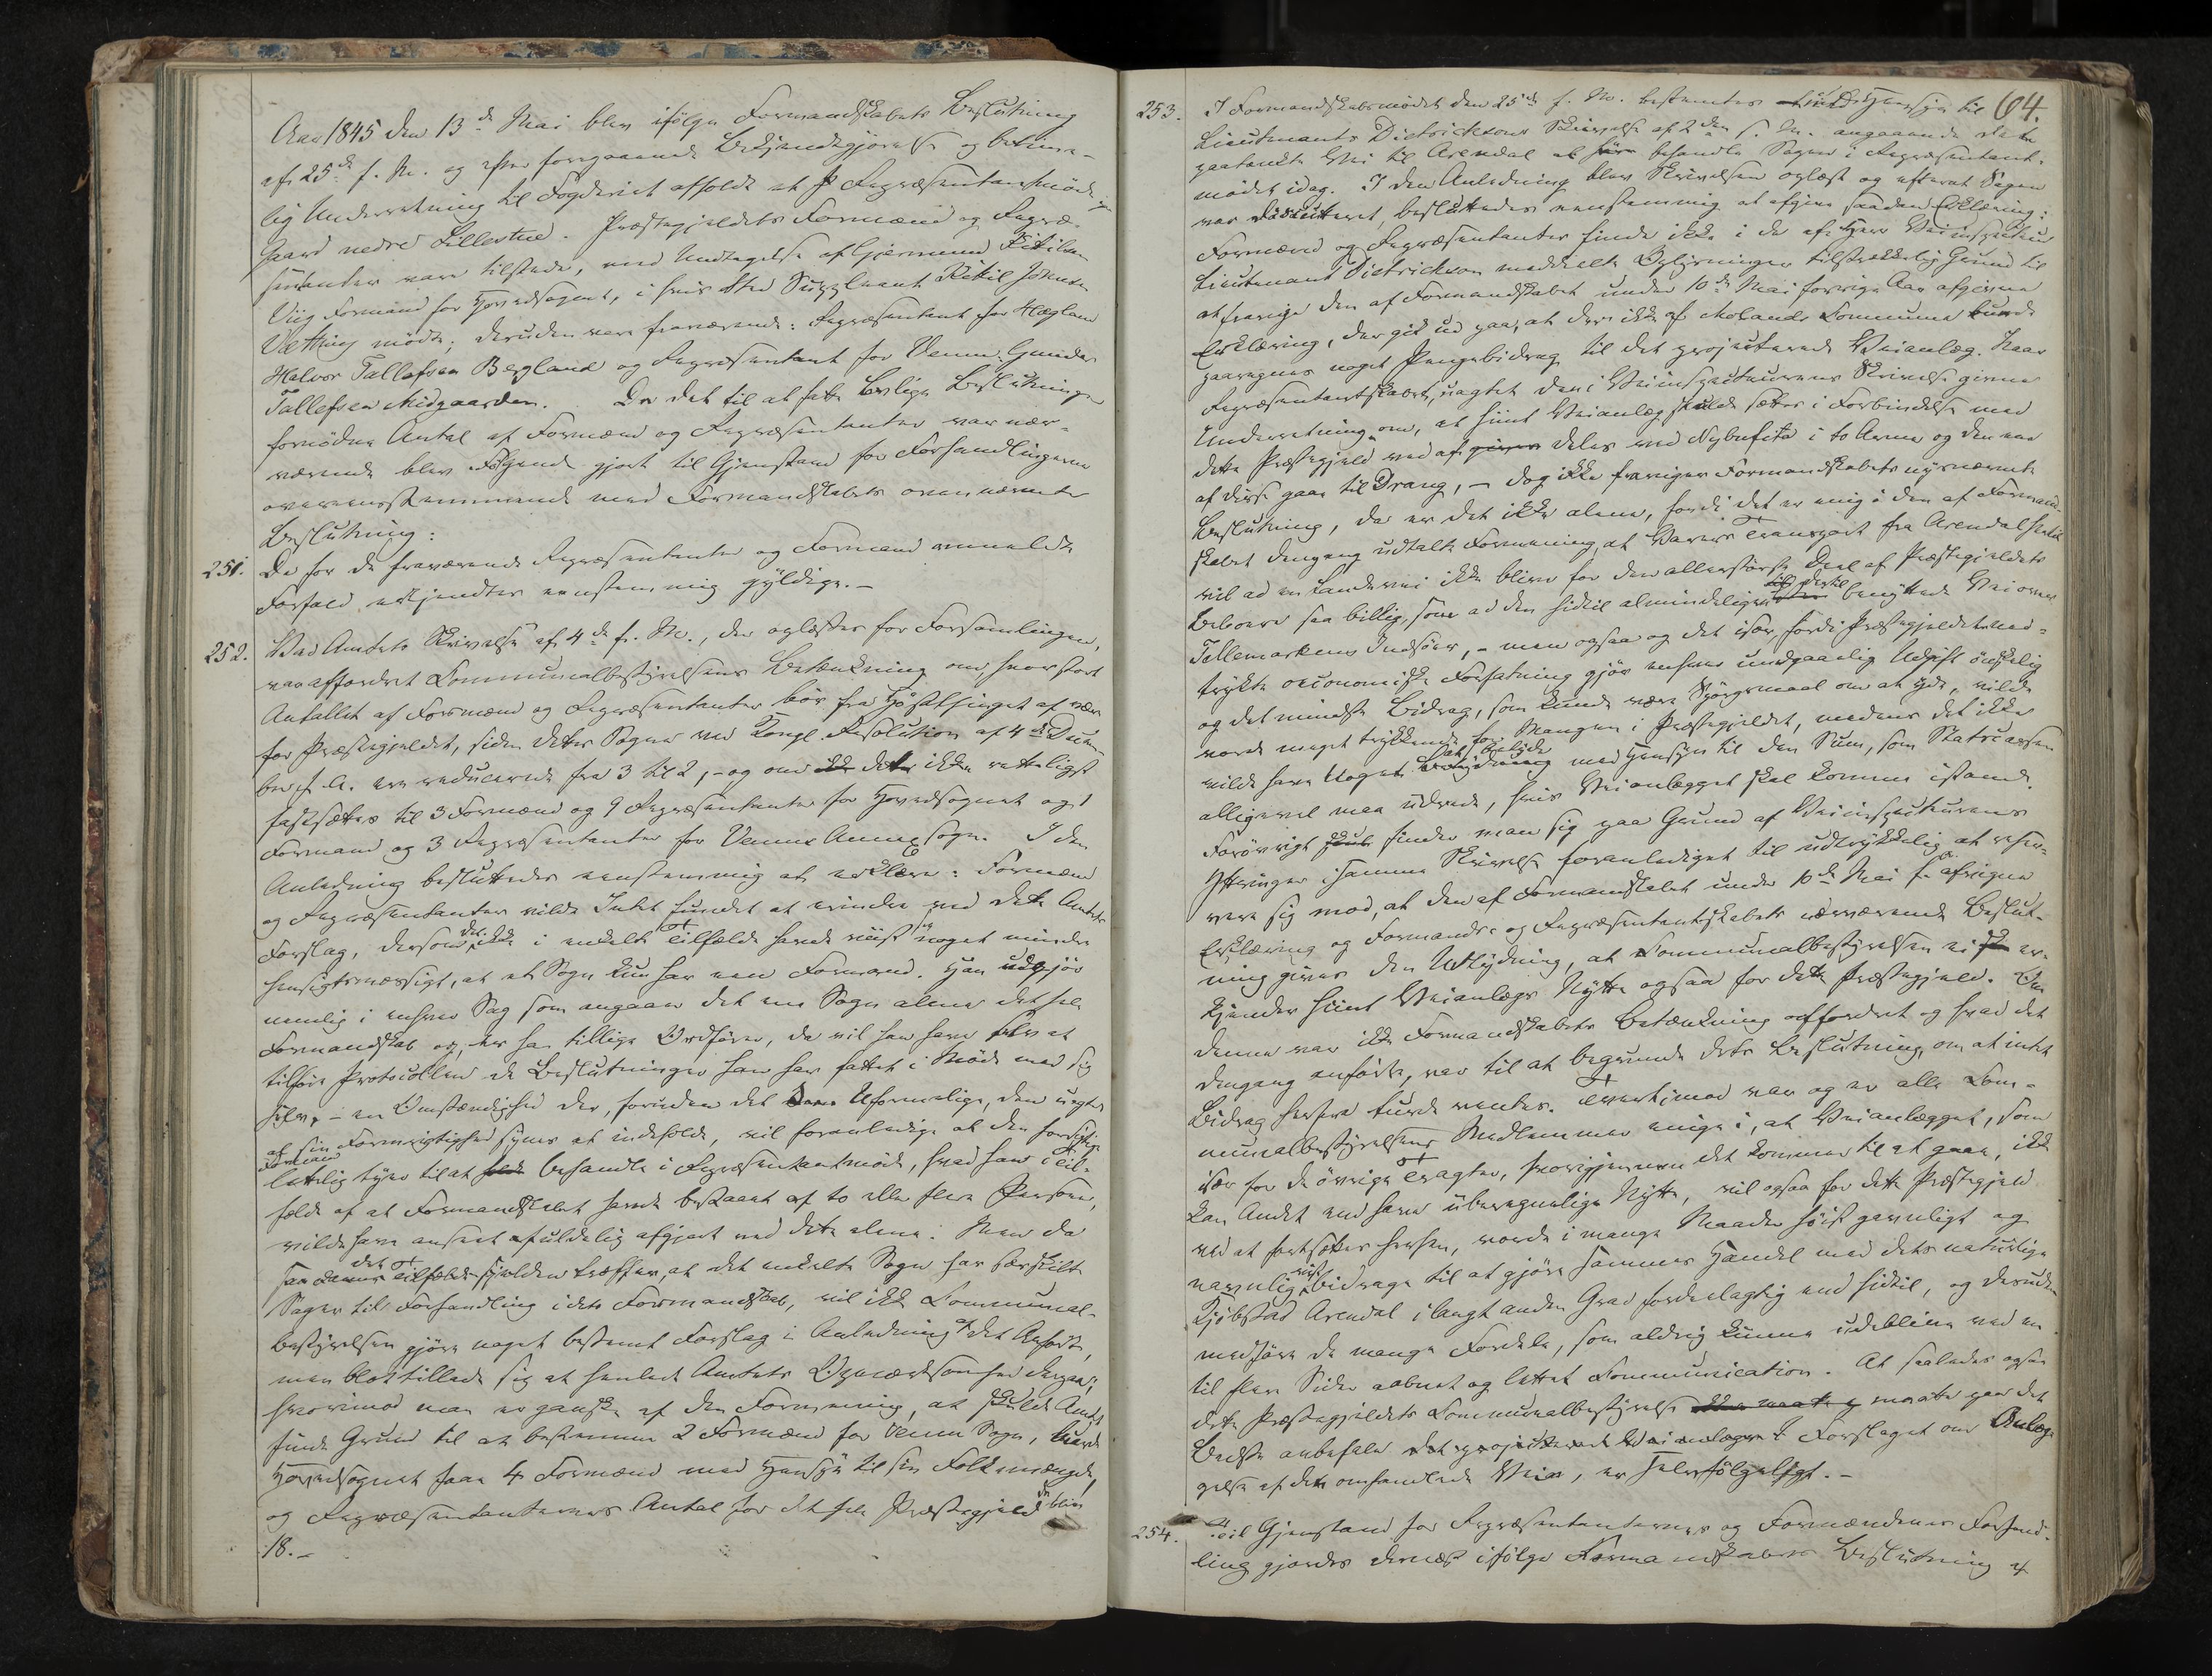 Aar 1845 den 13de Mai blev ifølge Formandskabets Beslutning
af 25de f. M. og efter foregaaende Bekjendtgjørelse og betime-
lig Underretning til Fogderiet afholdt et Repræsentantmøde paa
Gaard nedre Lillestue. Præstegjeldets Formænd og Repræ-
sentanter vare tilstede, med Undtagelse af Gjermund Kittilsen
Viig Formand for Hovedsognet, i hvis Sted Suppleant Kittil Johnsen
Vætting mødte; desuden vare fraværende: Repræsentant for
Halvor Tallefsen Bergland og Repræsentant for Vennu: Gunder
Tallefsen Midgaarden. Da det til at fatte lovlige Beslutninger
fornødne Antal af Formænd og Repræsentanter var nær-
værende blev Følgende gjort til Gjenstand for Forhandlingerne
overensstemmende med Formandskabets ovennævnte
Beslutning:
251. Da for de fraværende Repræsentanter og Formand anmeldte
Forfald erkjendtes eenstemmig gyldige.-
252. Ved Amtets Skrivelse af 4de f. M., der oplæstes for Forsamlingen,
var affordret Communalbestyrelsens Betænkning om, hvor stort
Antallet af Formænd og Repræsentanter bør fra Høstthinget af være
for Præstegjeldet, siden dets Sogne ved Kongl. Resolution af 4de Decem-
ber f. A. ere reducerede fra 3 til 2, - og om dette ikke retteligst
fastsættes til 3 Formænd og 9 Repræsentanter for Hovedsognet og 1
Formand og 3 Repræsentanter for Vennes Annexsogn. I den
Anledning besluttedes eenstemmig at erklære: Formænd
og Repræsentanter vilde Intet fundet at erindre ved dette Amtets
Forslag, dersom det ikke i enkelt Tilfælde havde viist sig noget mindre
hensigtsmæssigt, at et Sogn kun har een Formand. Han udgjør
nemlig i enhver Sag som angaaer det ene Sogn alene det hele
Formandskab og, er han tillige Ordfører, da vil han have selv at
tilføre Protocollen de Beslutninger han har fattet i Møde med sig
selv, - en Omstændighed der, foruden det Uformelige, den uagtet
al sin Formrigtighed synes at indeholde, vil foranledige at den forsigtige
Formand
lettelig tyer til at behandle i Repræsentantmøde, hvad han i Til-
fælde af at Formandskabet havde bestaaet af to eller flere Personer,
vilde have anseet afuldelig afgjort ved dette alene. Men da
det saa sjelden træffer, at det enkelte Sogn har særskilte
Sager til Forhandling i dets Formandskab, vil ikke Communal-
bestyrelsen gjøre noget bestemt Forslag i Anledning af det Anførte,
men blot tillade sig at henlede Amtets Opmærksomhed derpaa;
hvorimod man er ganske af den Formening, at skulde Amtet
finde Grund til at bestemme 2 Formænd for Vennu Sogn, burde
Hovedsognet faae 4 Formænd med Hensyn til sin Folkemængde,
og Repræsentanternes Antal for det hele Præstegjeld da blive
18.-
64.
253. I Formandskabsmødet den 25de f. M. bestemtes med Hensyn til
Lieutenants Dietricksons Skrivelse af 2den s. M. angaaende den
paatænkte Vei til Arendal at behandle Sagen i Repræsentant-
mødet idag. I den Anledning blev Skrivelsen oplæst og efterat Sagen
var discuteret, besluttedes eenstemmig at afgive saadan Erklæring:
Formænd og Repræsentanter finde ikke i de af Herr Veiinspecteur
Lieutenant Dietrickson meddeelte Oplysninger tilstrækkelig Grund til
at fravige den af Formandskabet under 10de Mai forrige Aar afgivne
Erklæring, der gik ud paa, at der ikke af Molands Commune burde
paaregnes noget Pengebidrag til det projecterede Veianlæg. Naar
Repræsentantskabet, uagtet den i Veiinspecteurens Skrivelse givne
Underretning om, at hiint Veianlæg skulde sættes i Forbindelse med
dette Præstegjeld ved at deles ved Nybufita i to Arme og den ene
af disse gaae til Drang, - dog ikke fraviger Formandskabets nysnævnte
Beslutning, da er det ikke alene, fordi det er enig i den af Formand-
skabet dengang udtalte Formening, at Varers Transport fra Arendal hertil
vil ad en Landevei ikke blive for den allerstørste Deel af Præstegjeldets
Beboere saa billig, som ad den hidtil almindeligen dertil benyttede Vei over
Tellemarkens Indsøer, - men ogsaa og det især, fordi Præstegjeldets ned-
trykte oeconomiske Forfatning gjør enhver undgaaelig Udgift ønskelig
og det mindste Bidrag, som kunde være Spørgsmaal om at yde, vilde
vorde meget trykkende for Mangen i Præstegjeldet, medens det ikke
vilde have Noget at betyde med Hensyn til den Sum, som Statscassen
alligevel maa udrede, hvis Veianlægget skal komme istand.
Forøvrigt finder man sig paa Grund af Veiinspecteurens
Yttringer i samme Skrivelse foranlediget til udtrykkelig at reser-
vere sig mod, at den af Formandskabet under 10de Mai f. A. afgivne
Erklæring og Formands- og Repræsentantskabets nærværende Beslut-
ning gives den Udtydning, at Communalbestyrelsen ei er-
kjender hiint Veianlægs Nytte ogsaa for dette Præstegjeld. Om
denne var ikke Formandskabets Betænkning affordret og hvad det
dengang anførte, var til at begrunde dets Beslutning, om at intet
Bidrag herfra burde ventes. Tvertimod var og er alle Com-
munalbestyrelsens Medlemmer enige i, at Veianlægget, som
især for de øvrige Tragter, hvorigjennem det kommer til at gaae, ikke
kan Andet end have uberegnelig Nytte, vil ogsaa for dette Præstegjeld
ved at fortsættes herhen, vorde i mange Maader høist gavnligt og
navnlig vist bidrage til at gjøre sammes Handel med dets naturlige
Kjøbstad Arendal i langt anden Grad fordeelagtig end hidtil, og desuden
medføre de mange Fordele, som aldrig kunne udeblive ved en
til flere Sider aabnet og lettet Communication. At saaledes ogsaa
dette Præstegjeldets Communalbestyrelse maatte paa det
Bedste anbefale Forslaget om Anlæg-
gelse af den omhandlede Vei, er selvfølgeligt.-
254. Til Gjenstand for Repræsentanternes og Formændenes Forhand-
ling gjordes dernæst ifølge Formandskabets Beslutning af